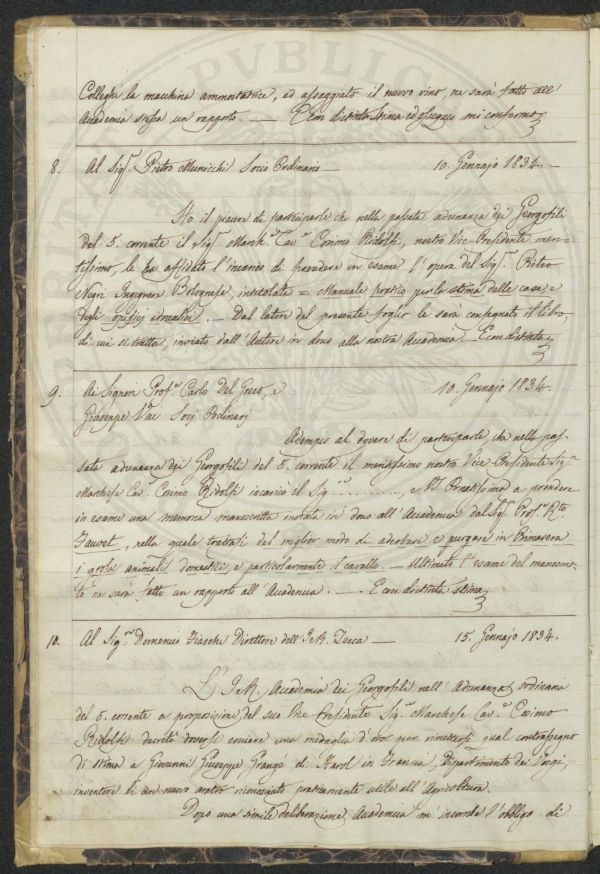 Colleghi la macchina ammostatrice, ed assaggiato il nuovo vino, ne sarà fatto all'
Accademia stessa un rapporto. — E con distinta stima ed ossequio mi confermo
8. Al Sigr. Pietro Municchi Socio Ordinario — 10. Gennajo 1834. —
Ho il piacere di parteciparle che nella passata adunanza dei Georgofili
del 5. corrente il Sigr. March.e Cav.e Cosimo Ridolfi, nostro Vice-Presidente meri-
tissimo, le ha affidato l'incarico di prendere in esame l'opera del Sigr. Pietro
Negri Ingegnere Bolognese, intitolata = Manuale pratico per la stima delle case, e
degli opifizj idraulici. — Dal lator del presente foglio le sarà consegnato il libro,
di cui si tratta, inviato dall'Autore in dono alla nostra Accademia. E con distinta
9. Ai Signori Prof.r Carlo Del Greco, e 10. Gennajo 1834.
Giuseppe Vai Socj Ordinarj
Adempio al dovere di parteciparle che nella pas-
sata adunanza dei Georgofili del 5. corrente il meritissimo nostro Vice Presidente Sigr.
Marchese Cav.e Cosimo Ridolfi incaricò il Sigr. ............, e VS. Ornatissima a prendere
in esame una memoria manoscritta inviata in dono all'Accademia dal Sigr. Prof.r
Fauvet, nella quale trattasi del miglior modo di aderbare e purgare in Primavera
i grossi animali domestici, e particolarmente il cavallo. — Ultimato l'esame del manoscrit-
to ne sarà fatto un rapporto all'Accademia. — E con distinta stima
10. Al Sigr. Domenico Fiaschi Direttore dell'I. e R. Zecca — 15. Gennajo 1834.
L'I. e R. Accademia dei Georgofili nell'Adunanza ordinaria
del 5. corrente a proposizione del suo Vice Presidente Sigr. Marchese Cav.e Cosimo
Ridolfi decretò doversi coniare una medaglia d'oro per rimettersi qual contrassegno
di stima a Giovanni Giuseppe Grangé di Harol in Francia, Dipartimento dei Vosgi,
inventore di un nuovo aratro riconosciuto praticamente utile all'Agricoltura.
Dopo una simile deliberazione Accademica m'incombe l'obbligo di